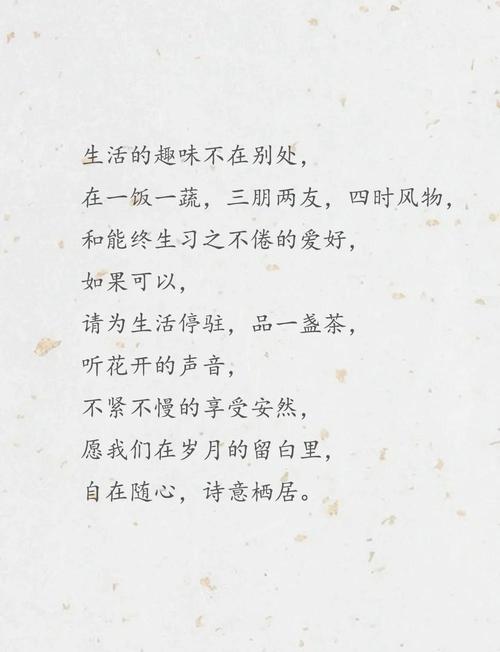 生活的趣味不在别处，
在一饭一蔬，三朋两友，四时风物，
和能终生习之不倦的爱好，
如果可以，
请为生活停驻，品一盏茶，
听花开的声音，
不紧不慢的享受安然，
愿我们在岁月的留白里，
自在随心，诗意栖居。